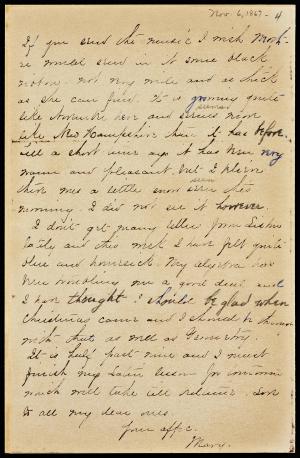 Nov. 6, 1867 - 4
If you send the music I wish Moth-
er would send in it some black
not very wide and as thick
as she can find. It is growing quite
like November here and seems more
seems
like New Hampshire than it has before.
till a short time ago it has been very
warm and pleasant but I believe
there was a little snow seen this
seen
morning. I did not see it however.
I don't get many letters from
lately and this week I have felt quite
blue and homesick. My algebra has
been troubling me a good deal and
I have thought I should be glad when
Christmas came and I should be through
with that as well as Geometry.
It is half past nine and I must
finish my Latin lesson for tomorrow
which will take till retire. Love
to all my dear ones.
Your affc.
Mary.